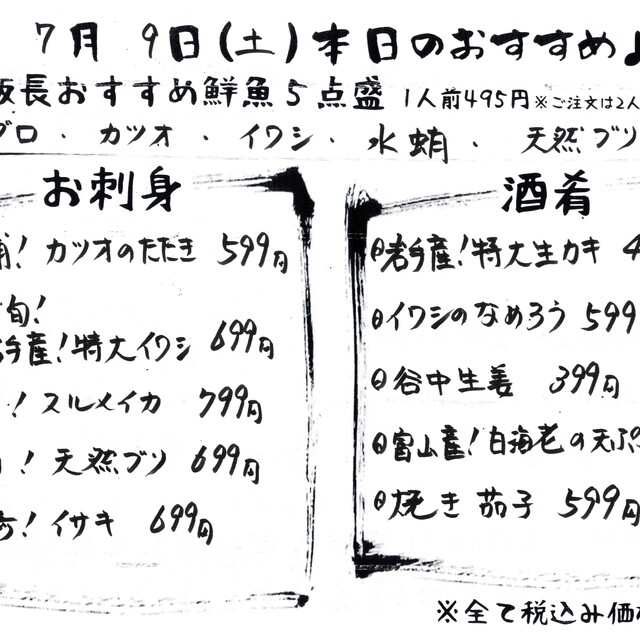 7月 9日(土)本日のおすすめ♪
板長おすすめ鮮魚5点盛 1人前495円 ※ご注文は2人
グロ ・ カツオ ・ イワシ ・ 水蛸 ・ 天然ブリ
お刺身
! カツオのたたき 599円
旬!
岩手産!特大イワシ 699円
! スルメイカ 799円
! 天然ブリ 699円
! イサキ 699円
酒肴
岩手産!特大生カキ 4
イワシのなめろう 599
谷中生姜 399円
富山産!白海老の天ぷ
焼き茄子 599円
※全て税込み価格